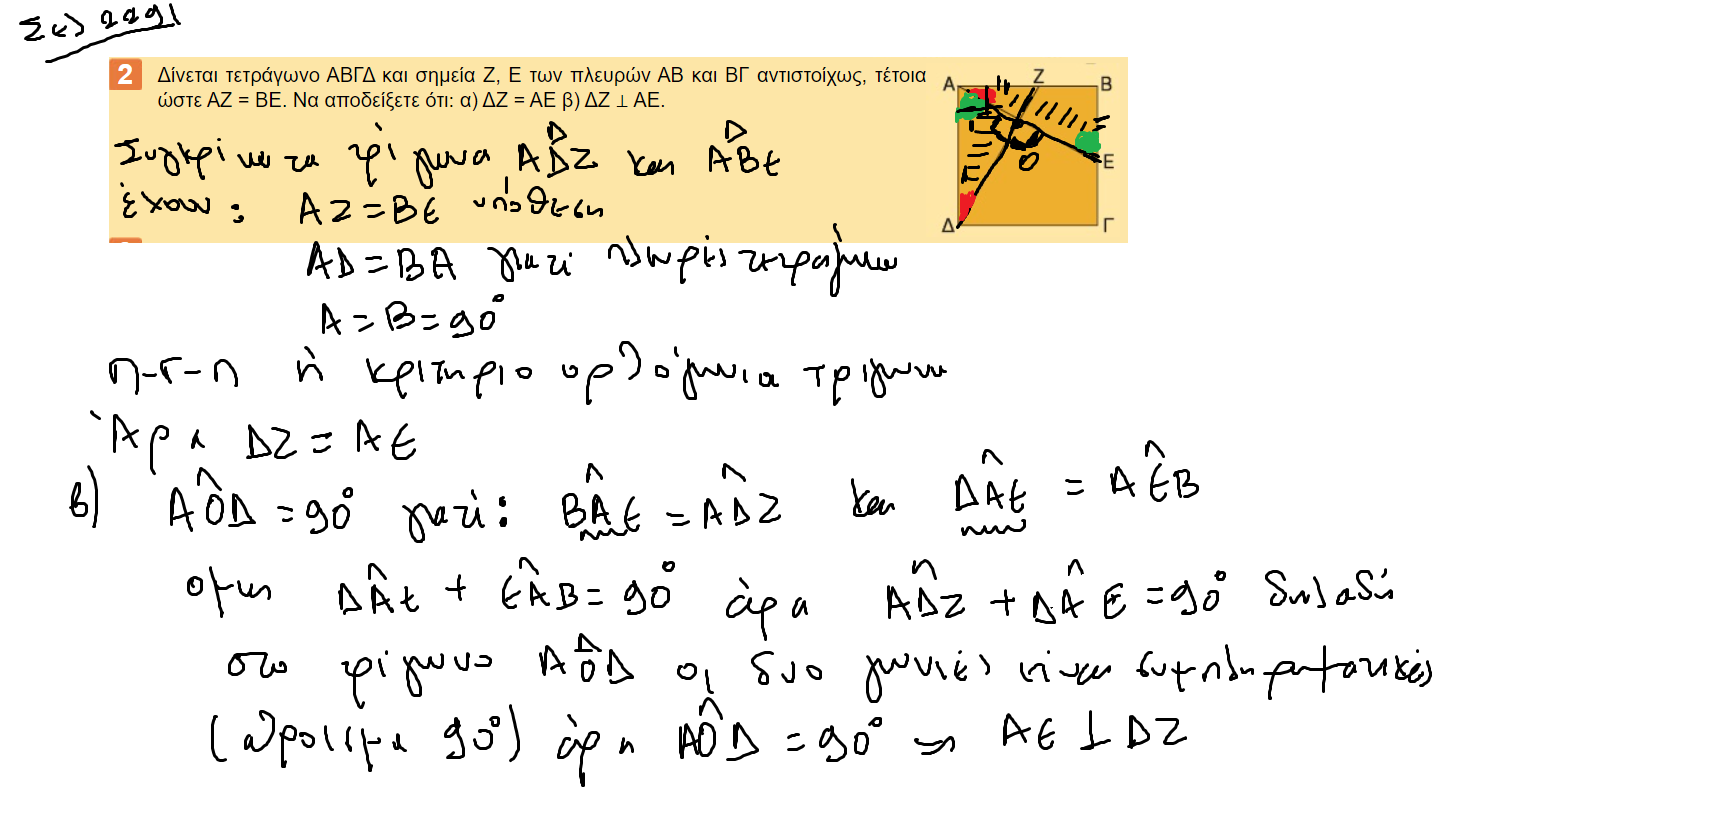 Σελ 229
2 Δίνεται τετράγωνο ΑΒΓΔ και σημεία Ζ, Ε των πλευρών ΑΒ και ΒΓ αντιστοίχως, τέτοια
ώστε ΑΖ = ΒΕ. Να αποδείξετε ότι: α) ΔΖ = ΑΕ β) ΔΖ ⊥ ΑΕ.
Α Ζ Β
Ε
Ο
Δ Γ
Συγκρίνω τα τρίγωνα ΑΔΖ και ΑΒΕ
έχουν: ΑΖ=ΒΕ υπόθεση
ΑΔ=ΒΑ γιατί πλευρές τετραγώνου
Α=Β=90°
Π-Γ-Π ή κριτήριο ορθογώνια τριγωνα
Άρα ΔΖ=ΑΕ
β) ΑÔΔ=90° γιατί: ΒÂΕ=ΑΔ̂Ζ και ΔÂΕ = ΑÊΒ
όμως ΔÂΕ + ΕÂΒ=90° άρα ΑΔ̂Ζ+ΔÂΕ=90° δηλαδή
στο τρίγωνο ΑΟΔ οι δυο γωνιές είναι συμπληρωματικές
(αθροισμα 90°) άρα ΑÔΔ=90° ⇒ ΑΕ⊥ΔΖ